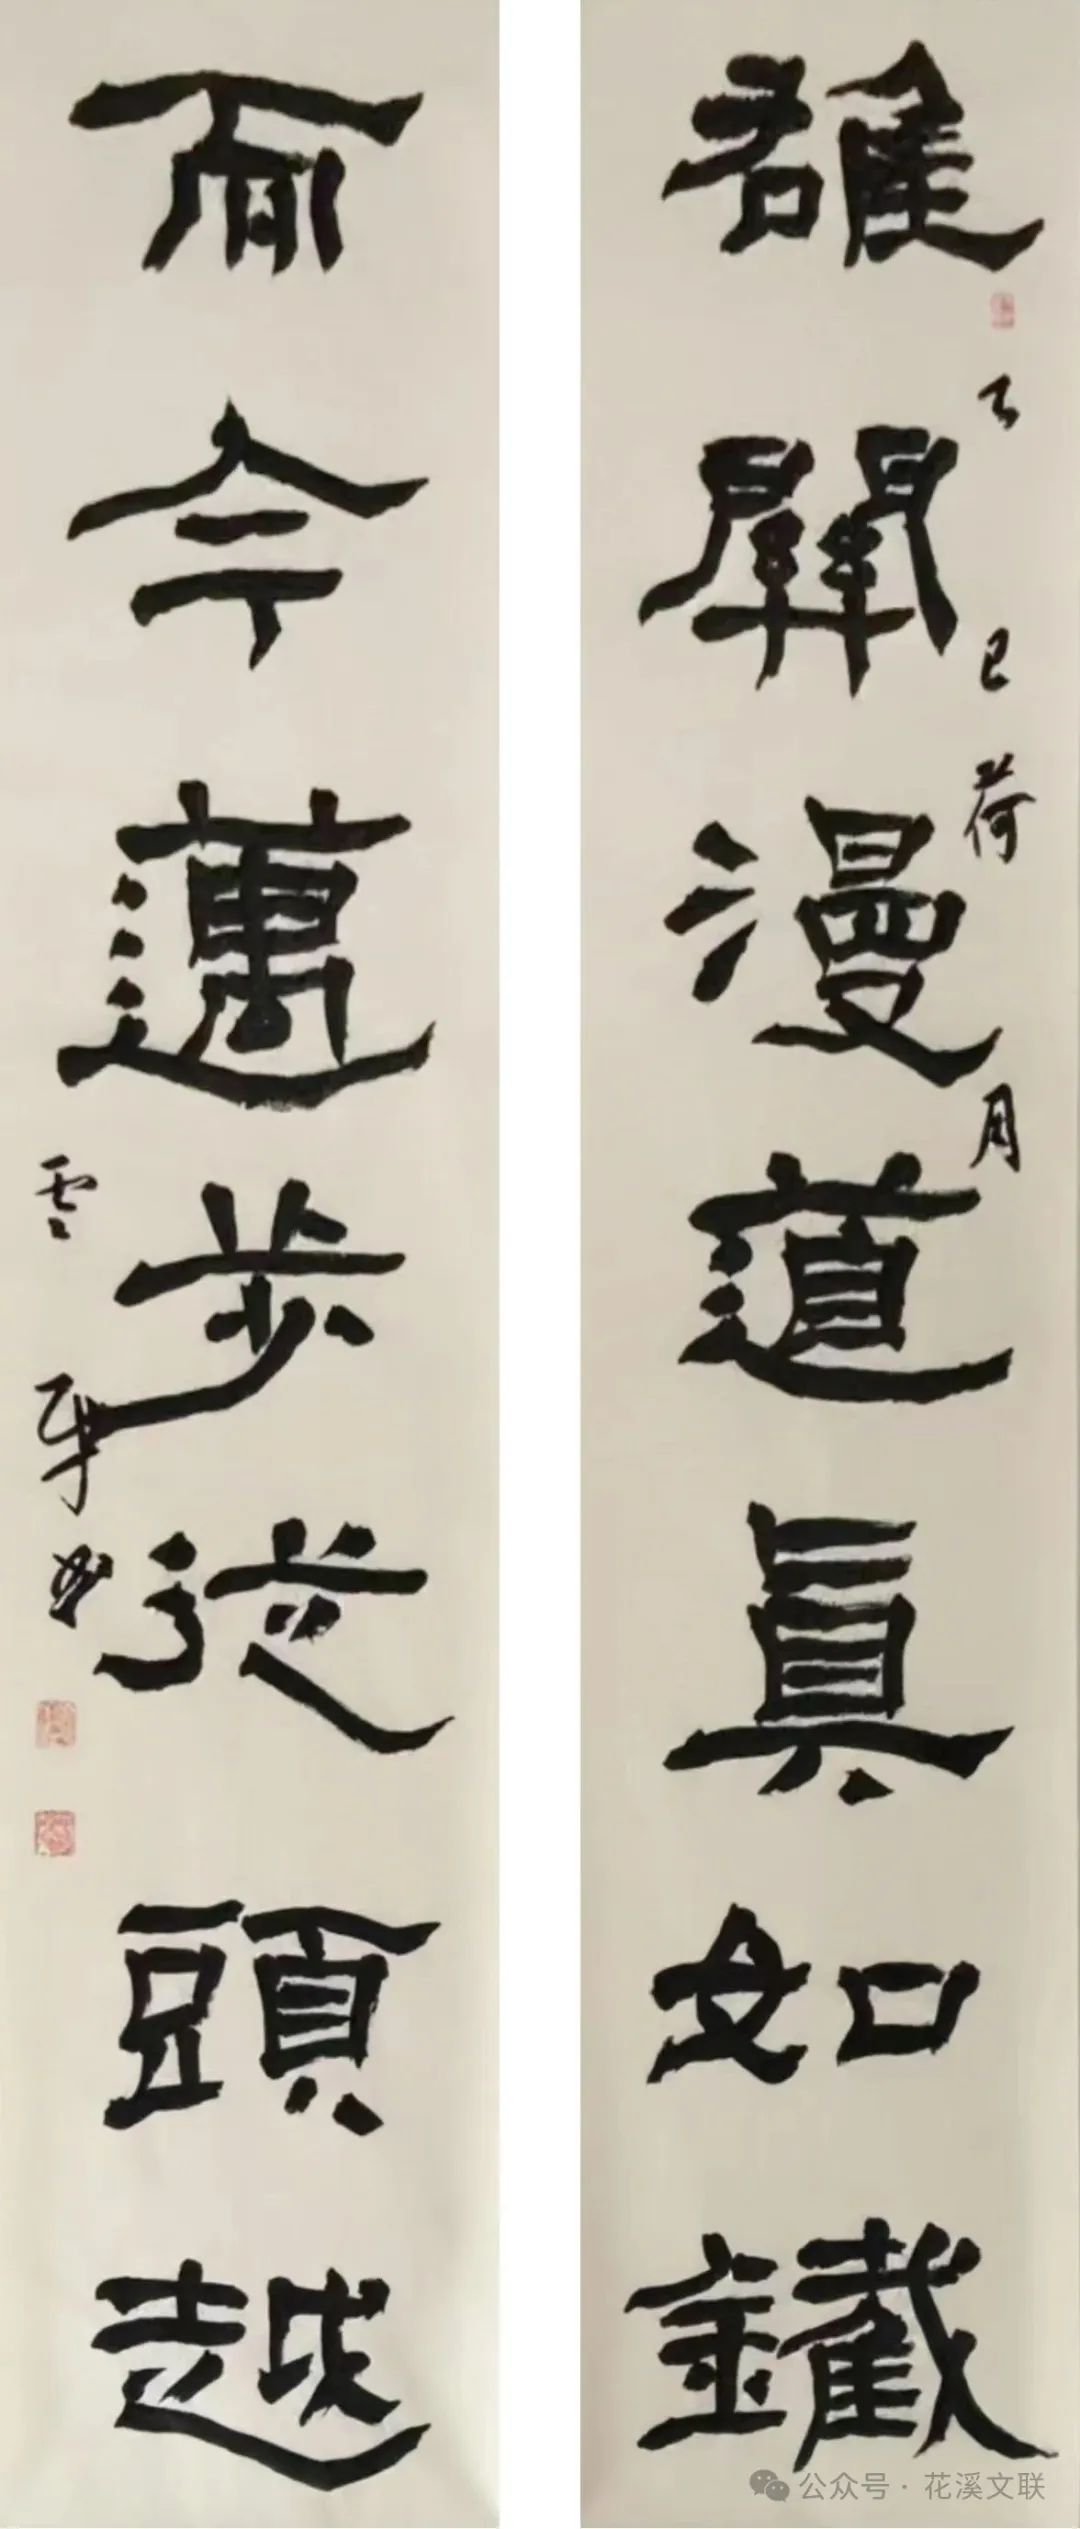 雄關漫道真如鐵
乙巳荷月
而今邁步從頭越
雲
书
公众号 · 花溪文联